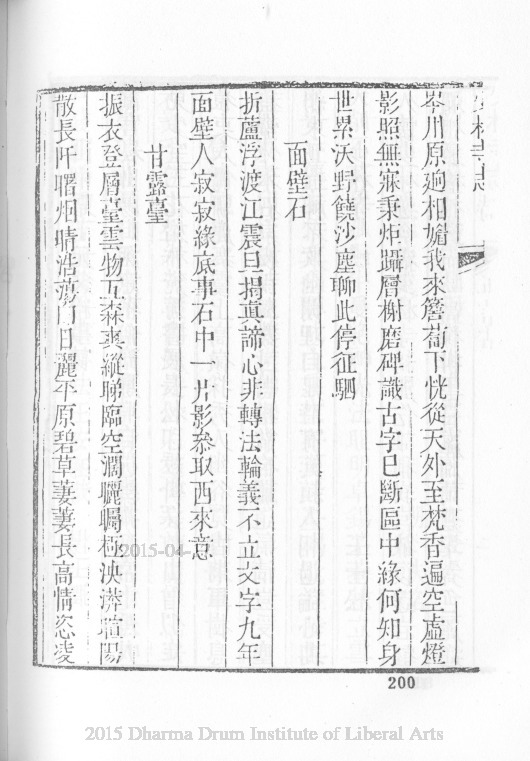 少林寺志
岑川原迥相媚我來簷蔔下恍從天外至梵香遍空虛燈
影照無寐秉炬躡層榭磨碑識古字已斷區中緣何知身
世累沃野饒沙塵聊此停征駟
面壁石
折蘆浮渡江震旦揭真諦心非轉法輪義不立文字九年
面壁人寂寂緣底事石中一片影叅取西來意
甘露臺
振衣登層臺雲物互森爽縱睇臨空濶矖矚極泱漭暄陽
散長阡曙烟晴浩蕩日麗平原碧草萋萋長高情恣凌
200
2015-04-
2015 Dharma Drum Institute of Liberal Arts